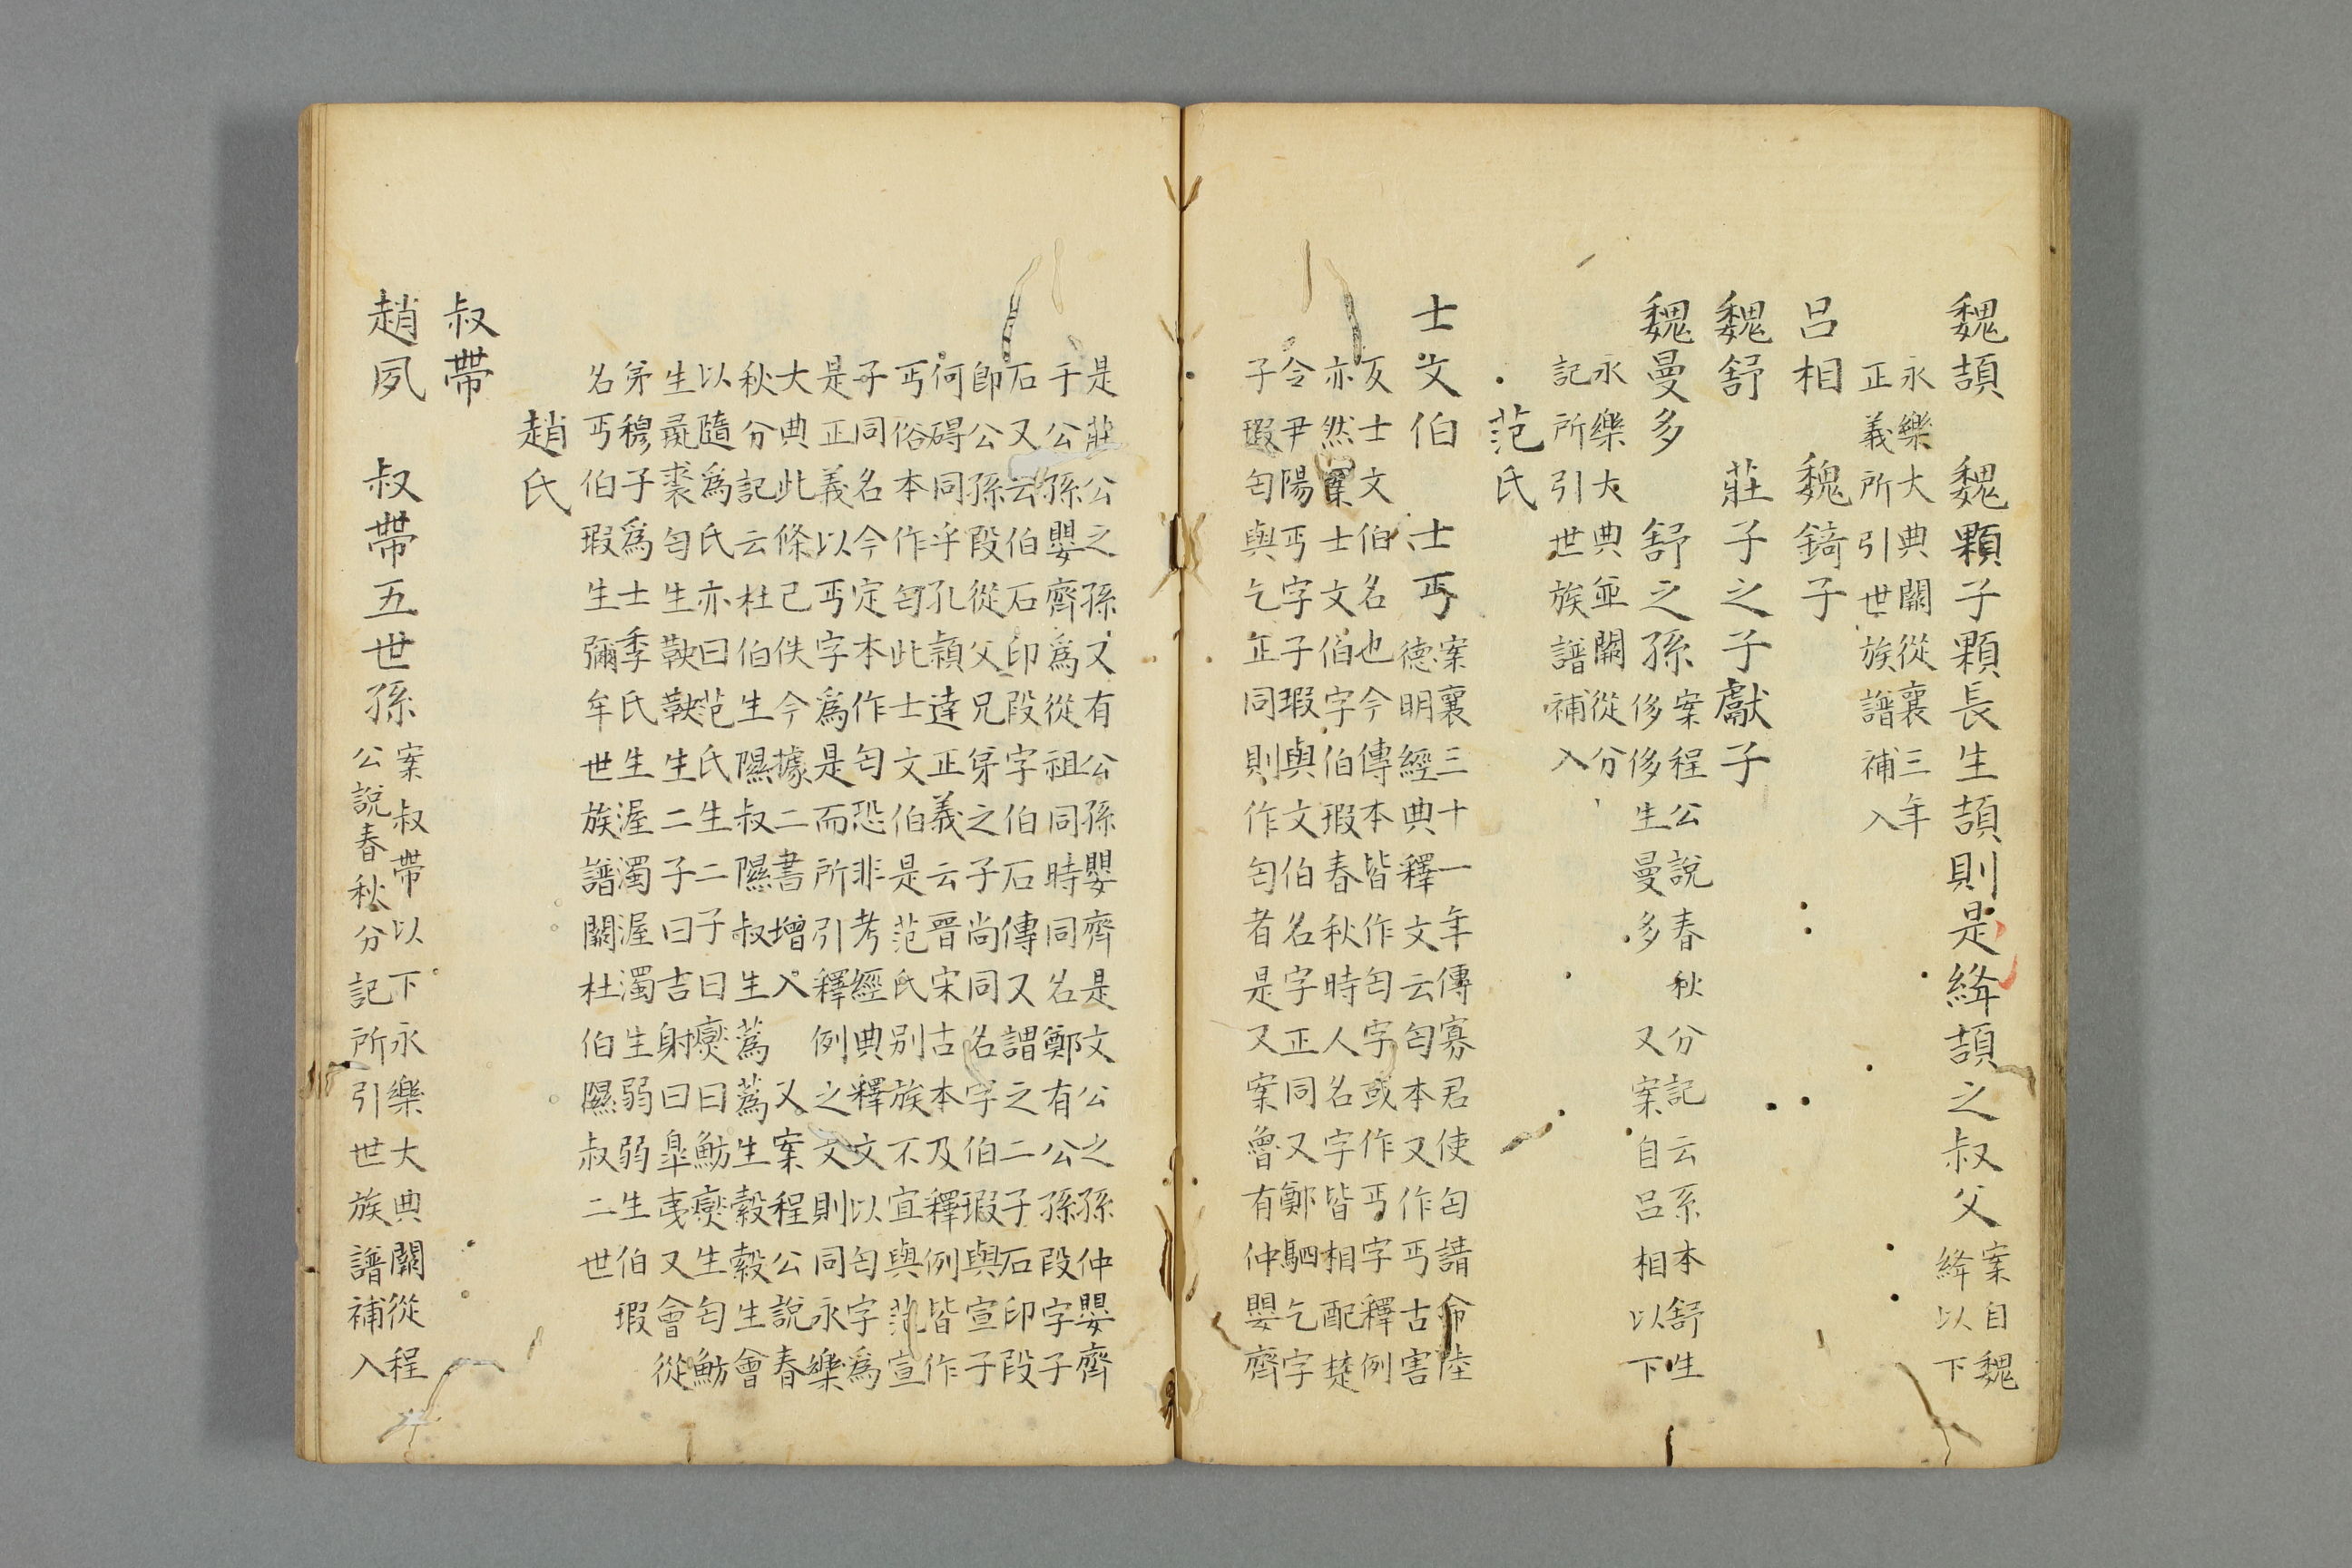 魏頡　魏顆子顆長生頡則是絳頡之叔父案自魏
絳以下
永樂大典闕從襄三年
正義所引世族譜補入
呂相　魏錡子
魏舒　莊子之子獻子
魏曼多　舒之孫案程公說春秋分記云系本舒生
侈侈生曼多又案自呂相以下
永樂大典並闕從分
記所引世族譜補入
范氏
士文伯　士丐案襄三十一年傳寡君使匄請命陸
德明經典釋文云匄本又作丐古害
反士文伯名也今傳本皆作匄字或作丐字釋例
亦然案士文伯字伯瑕春秋時人名字皆相配楚
令尹陽丐字子瑕與文伯名字正同又鄭駟乞字
子瑕匄與乞正同則作匄者是又案魯有仲嬰齊
是莊公之孫又有公孫嬰齊是文公之孫仲嬰齊
于公孫嬰齊爲從祖同時同名鄭有公孫段字子
石又云伯石印段字伯石傳又謂之二子石印段
即公孫段從父兄弟之子尚同名字伯瑕與宣子
何碍同乎孔穎達正義云晉宋古本及釋例皆作
丐俗本作匄此士文伯是范氏别族不宜與范宣
子同名今定本作匄恐非考經典釋文以匄字爲
是正義以丐字爲是而所引釋例之文則同永樂
大典此條已佚今據二書增入　又案程公說春
秋分記云杜伯生隰叔隰叔生蔿蔿生縠縠生會
以隨爲氏亦曰范氏生二子曰燮曰魴燮生匄魴
生彘裘匄生鞅鞅生二子曰吉射曰臯夷又會從
弟穆子爲士季氏生渥濁渥濁生弱弱生伯瑕
名丐伯瑕生彌牟世族譜闕杜伯隰叔二世
趙氏
叔帶
趙夙　叔帶五世孫案叔帶以下永樂大典闕從程
公說春秋分記所引世族譜補入